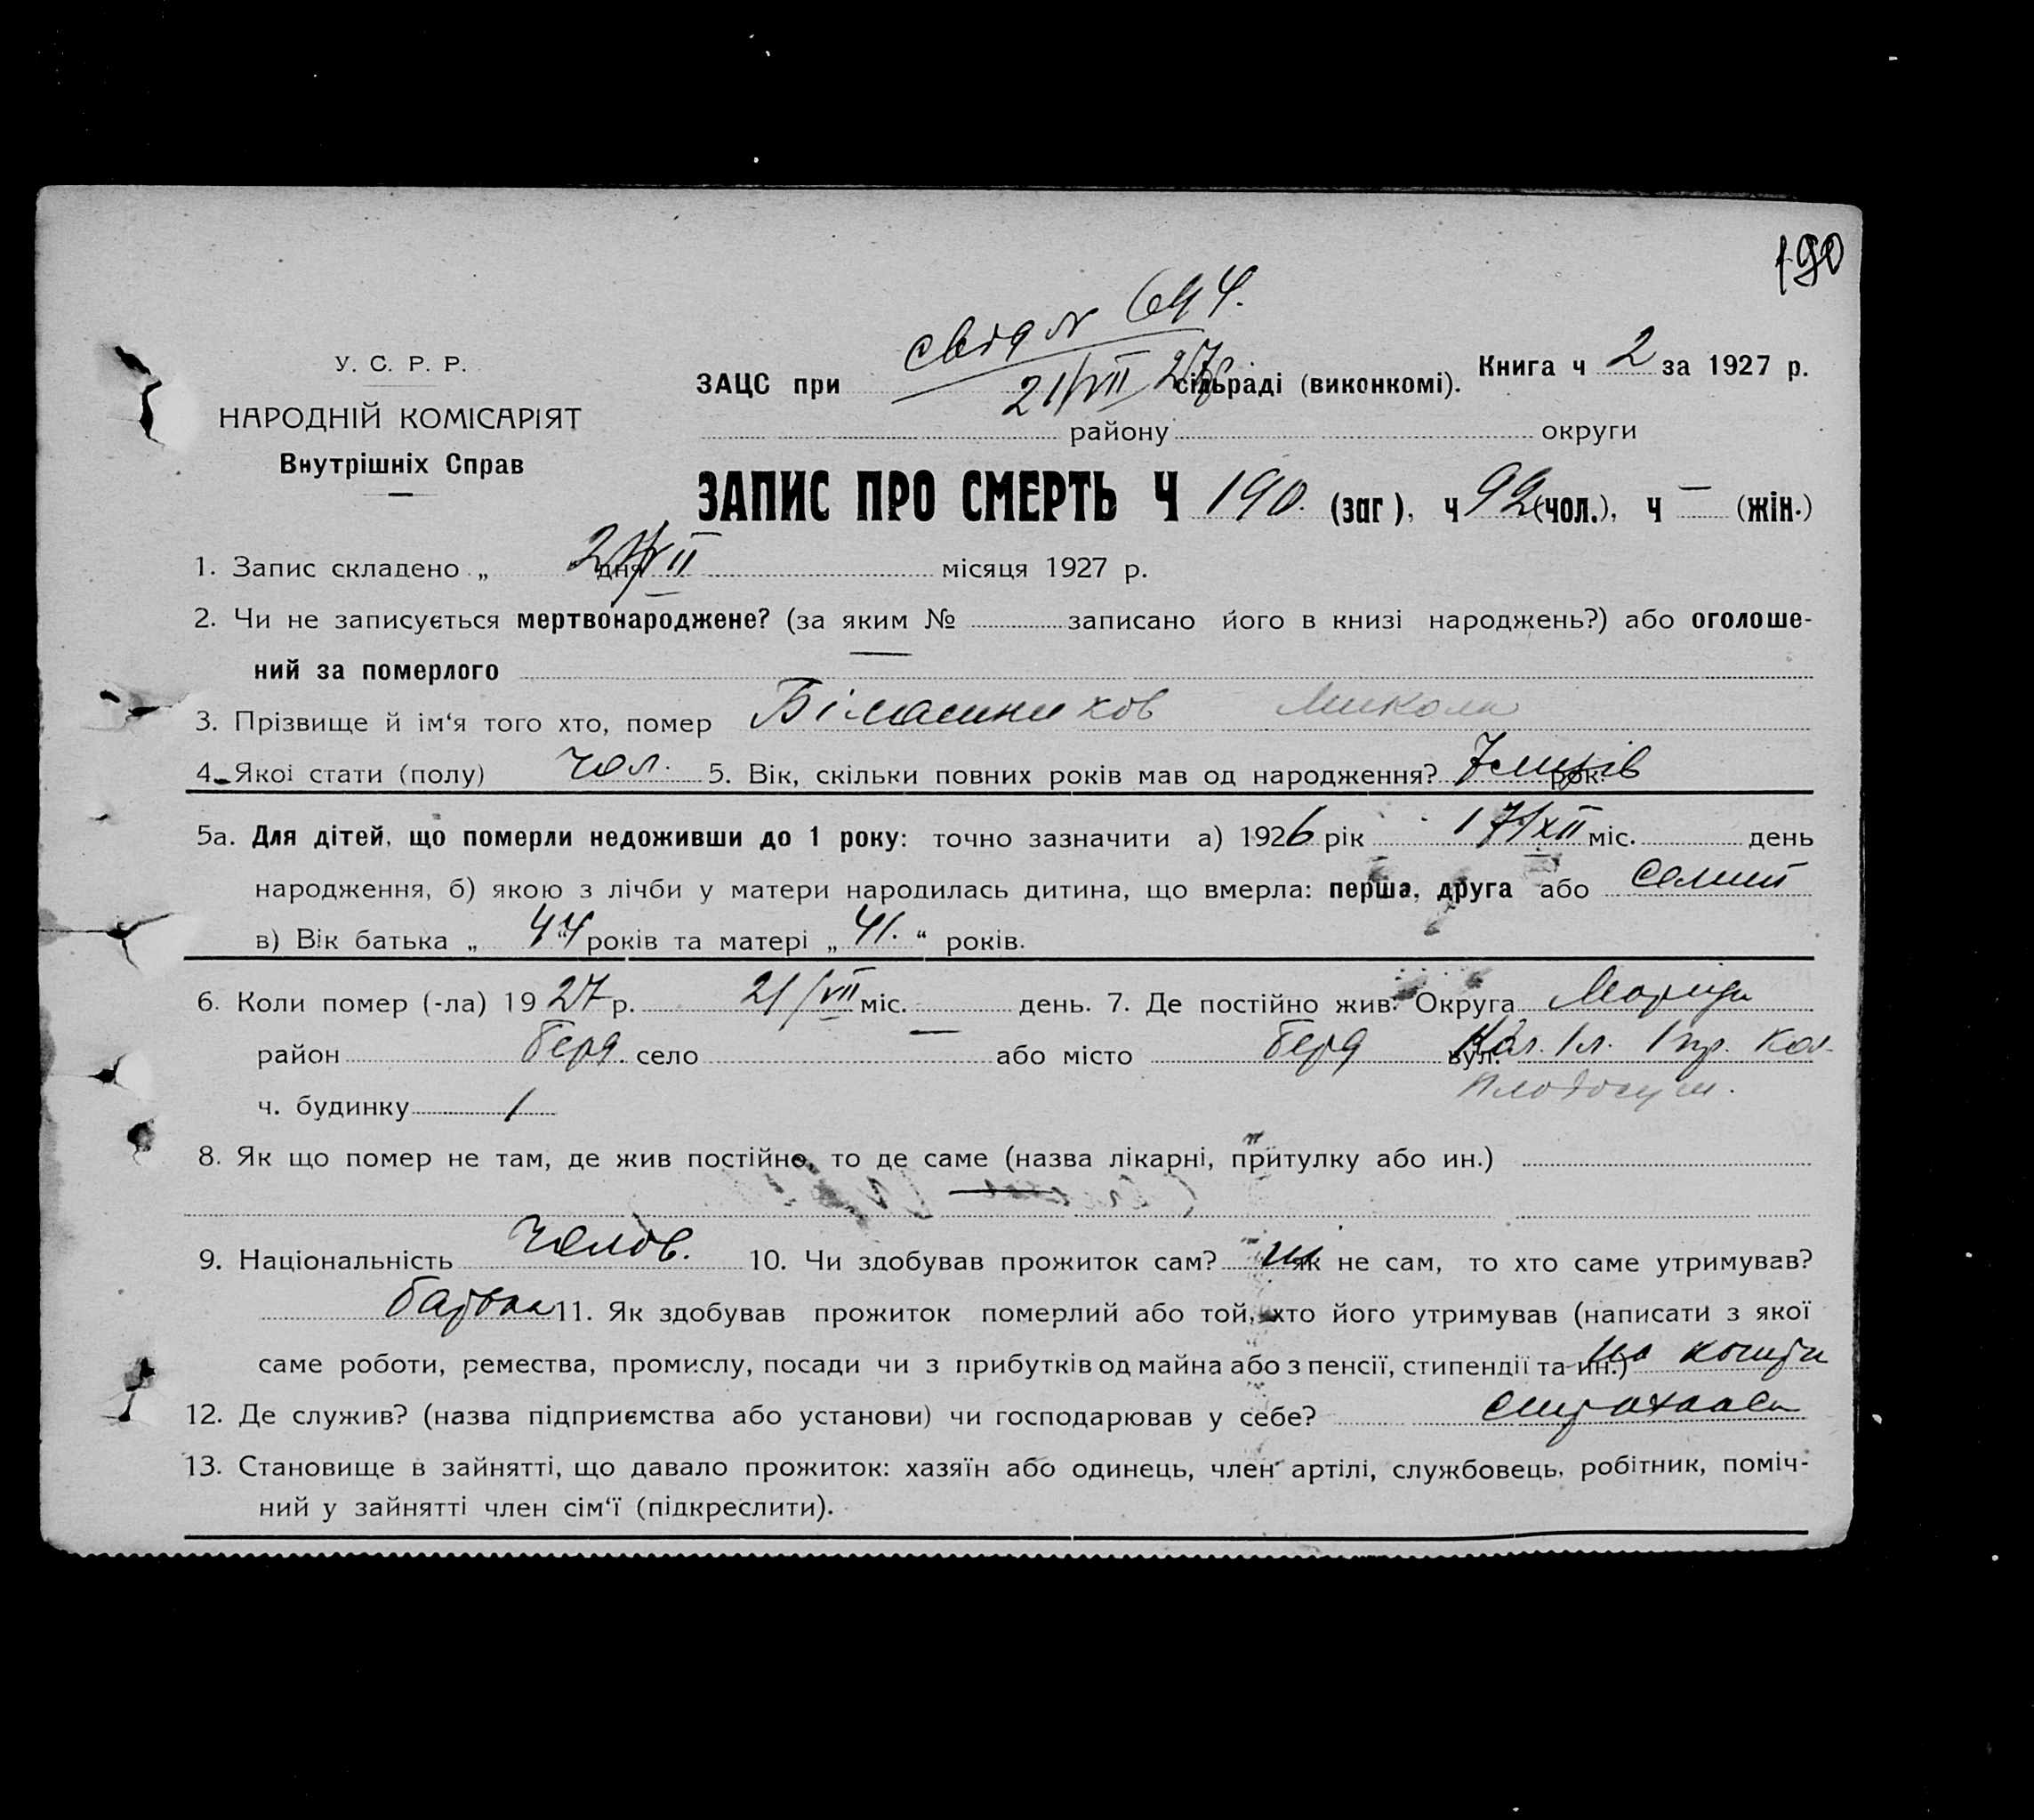 190
свід N 694.
21/VII 27р.
У. С. Р. Р.
НАРОДНІЙ КОМІСАРІЯТ
Внутрішніх Справ
ЗАЦС при сільраді (виконкомі). Книга ч 2 за 1927 р.
району округи
ЗАПИС ПРО СМЕРТЬ Ч 190. (заг), ч 92 (чол.), ч — (жін.)
1. Запис складено „ 21/VII дня місяця 1927 р.
2. Чи не записується мертвонароджене? (за яким № записано його в книзі народжень?) або оголоше-
ний за померлого —
3. Прізвище й ім‘я того хто, помер Микола
4. Якої стати (полу) чол. 5. Вік, скільки повних років мав од народження? 7 рок.
5а. Для дітей, що померли недоживши до 1 року: точно зазначити а) 1926 рік 17/XII міс. день
народження, б) якою з лічби у матери народилась дитина, що вмерла: перша, друга або семий
в) Вік батька „ 44 “ років та матері „ 41. “ років.
6. Коли помер (-ла) 1927 р. 21/VII міс. — день. 7. Де постійно жив: Округа
район Берд. село — або місто Берд вул. Кол. 1 л. 1 пр. Кол.
ч. будинку 1
8. Як що помер не там, де жив постійно, то де саме (назва лікарні, притулку або ин.)
—
9. Національність 10. Чи здобував прожиток сам? ні як не сам, то хто саме утримував?
батько 11. Як здобував прожиток померлий або той, хто його утримував (написати з якої
саме роботи, ремества, промислу, посади чи з прибутків од майна або з пенсії, стипендії та ин.) на кошти
12. Де служив? (назва підприємства або установи) чи господарював у себе?
13. Становище в зайнятті, що давало прожиток: хазяїн або одинець, член артілі, службовець, робітник, поміч-
ний у зайнятті член сім‘ї (підкреслити).